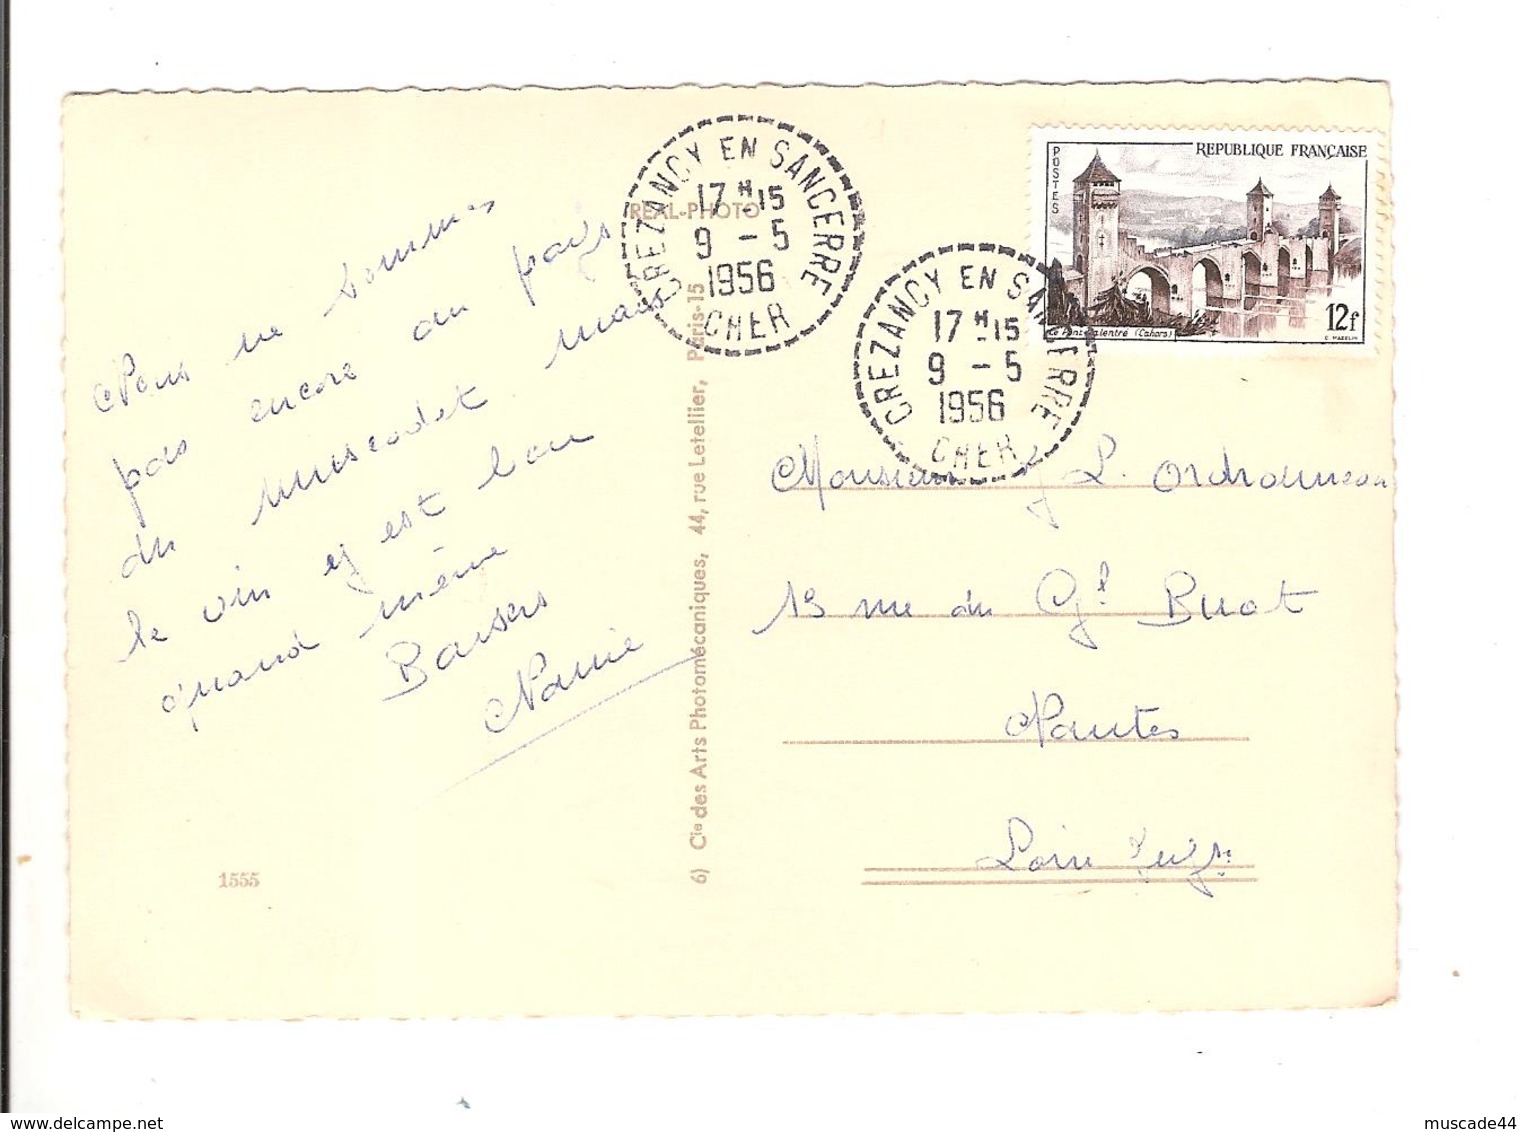 Nous ne sommes
pas encore au pays
du muscadet mais
le vin y est bon
quand même
Baisers
Nanie
1555
REAL-PHOTO
6) Cie des Arts Photomécaniques, 44, rue Letellier, Paris-15
CREZANCY EN SANCERRE
17 H 15
9 - 5
1956
CHER
CREZANCY EN SANCERRE
17 H 15
9 - 5
1956
CHER
POSTES
REPUBLIQUE FRANÇAISE
12f
Le Pont Valentré (Cahors)
C. MAZELIN
Monsieur J L. Ordronneau
13 rue du Gl Buat
Nantes
Loire Infre
www.delcampe.net
muscade44